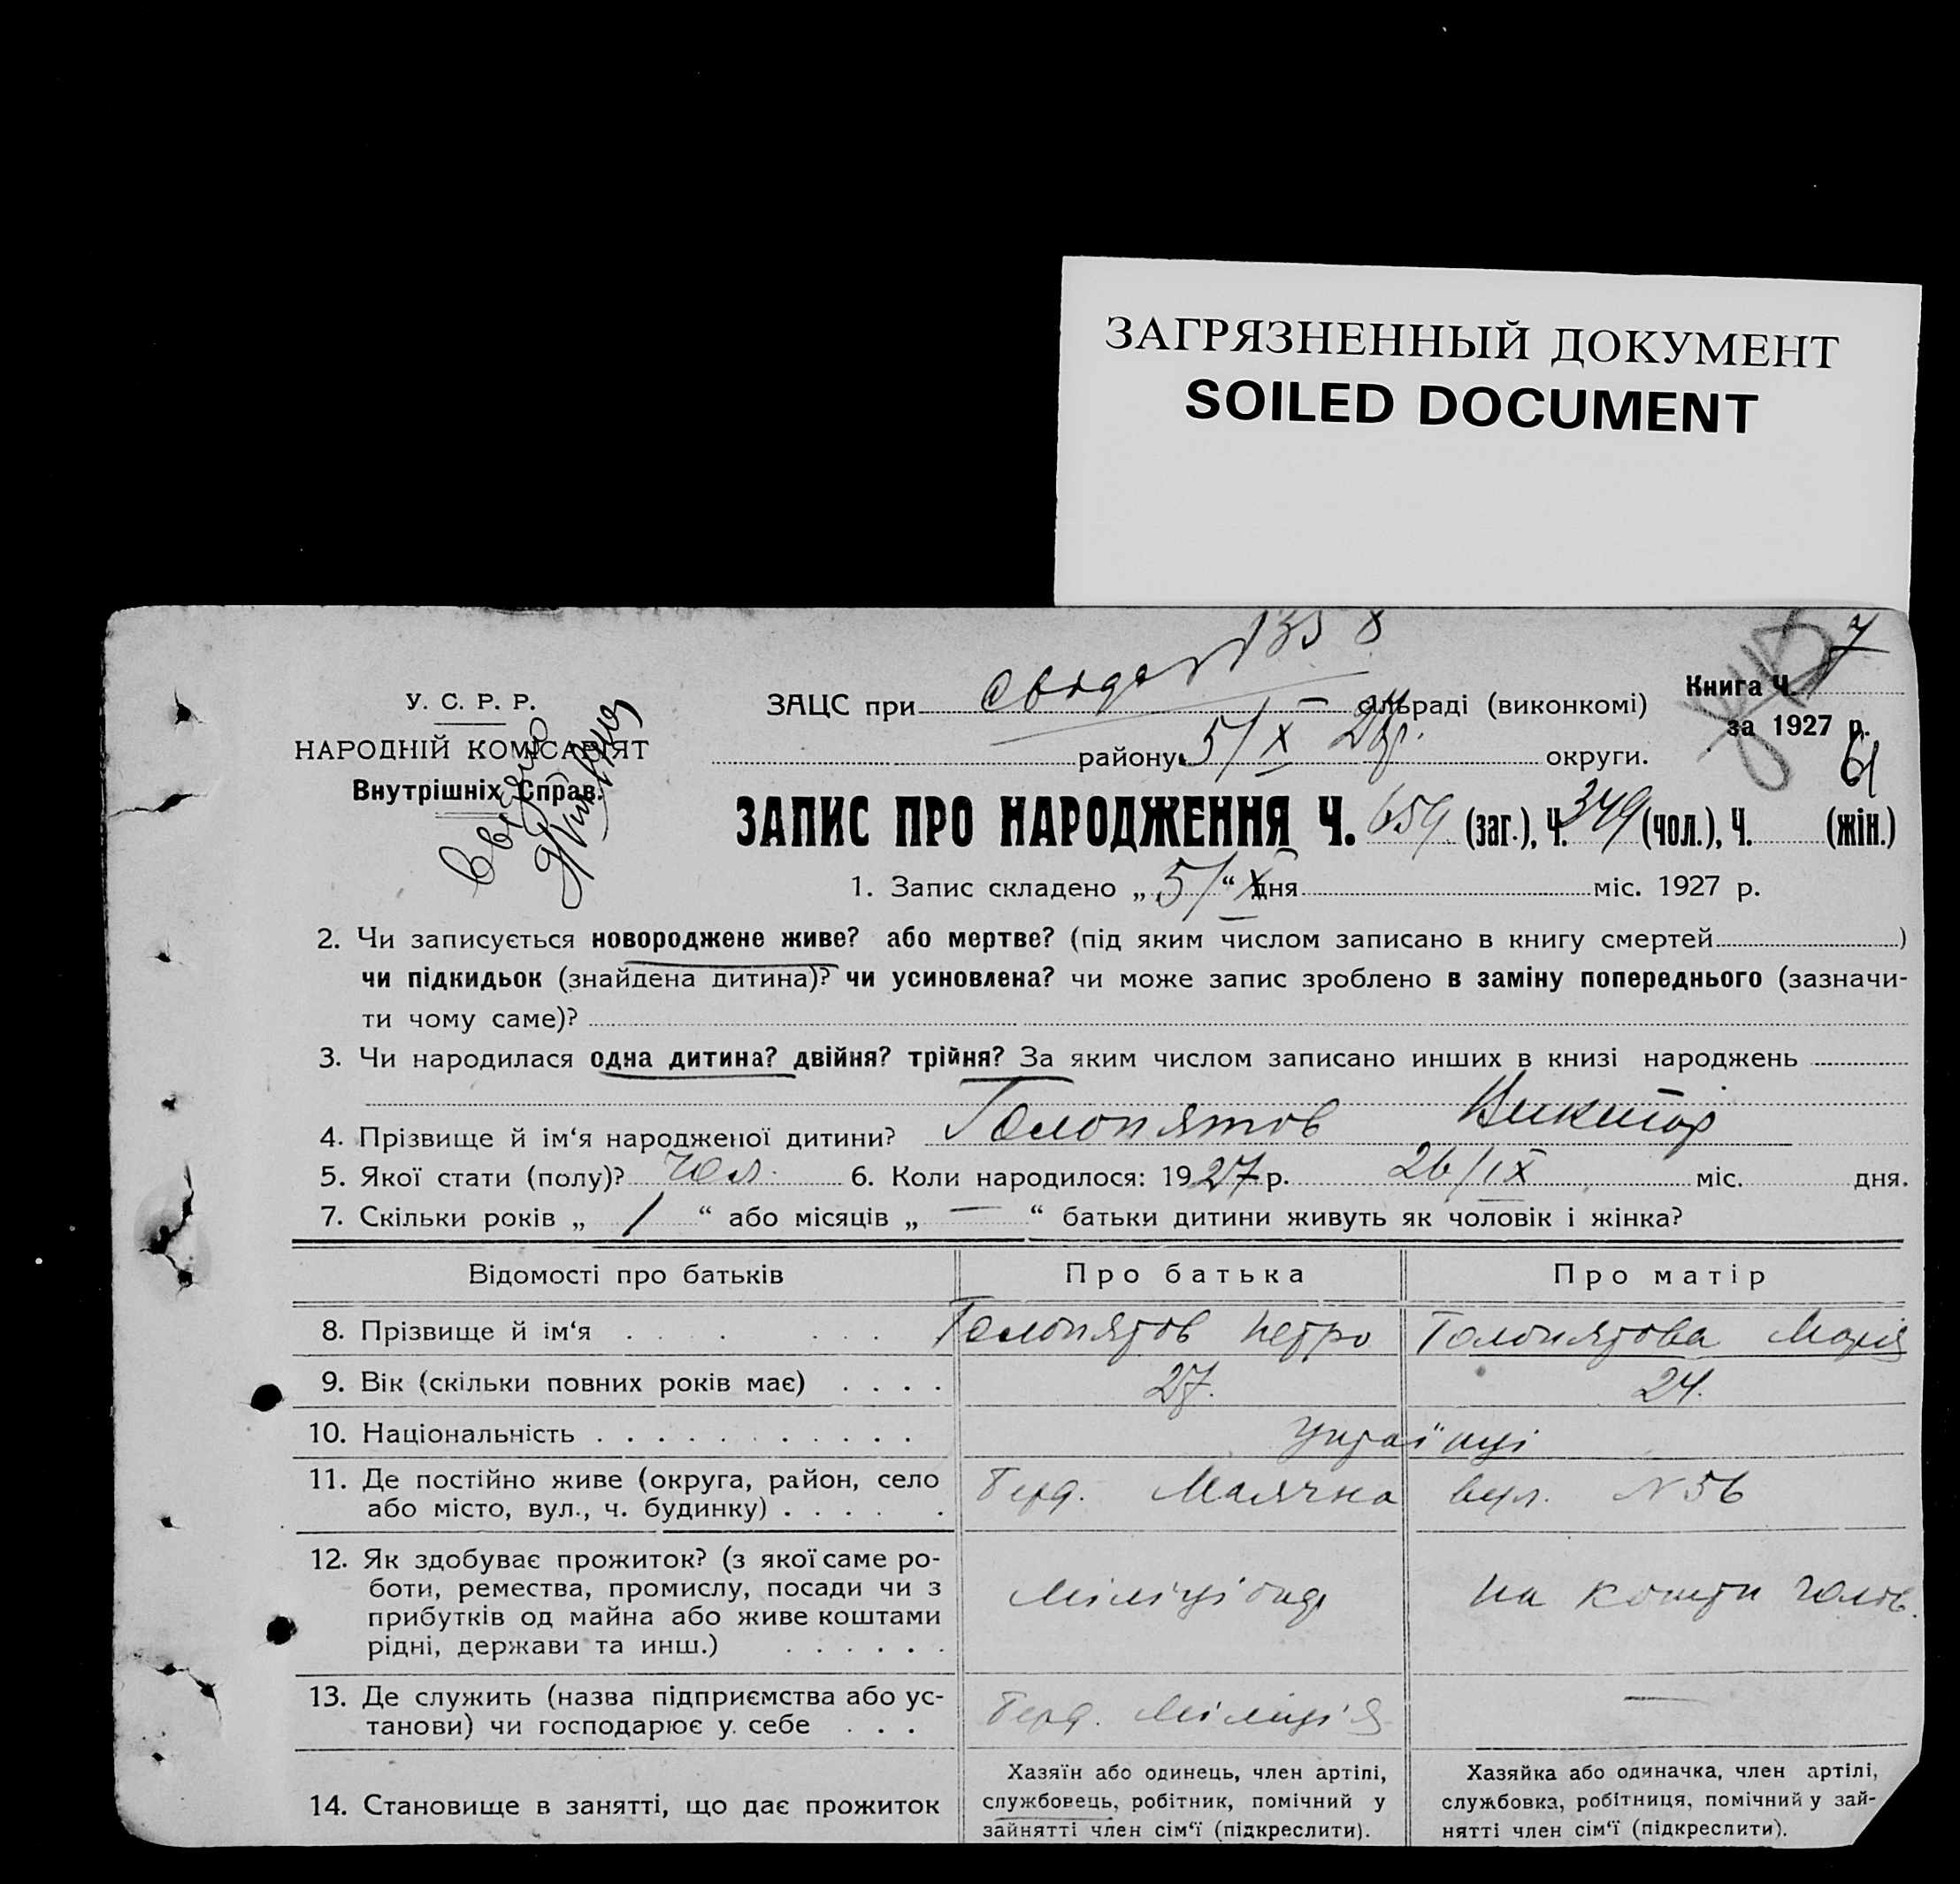 ЗАГРЯЗНЕННЫЙ ДОКУМЕНТ
SOILED DOCUMENT
7
Книга Ч.
за 1927 р.
61
У. С. Р. Р.
НАРОДНІЙ КОМІСАРІЯТ
Внутрішніх Справ.
ЗАЦС при сільраді (виконкомі)
району 5/X 27р. округи.
ЗАПИС ПРО НАРОДЖЕННЯ Ч. 659 (заг.), Ч. 349 (чол.), Ч. (жін.)
1. Запис складено „ 5/X “ дня міс. 1927 р.
2. Чи записується новороджене живе? або мертве? (під яким числом записано в книгу смертей )
чи підкидьок (знайдена дитина)? чи усиновлена? чи може запис зроблено в заміну попереднього (зазначи-
ти чому саме)?
3. Чи народилася одна дитина? двійня? трійня? За яким числом записано инших в книзі народжень
4. Прізвище й ім‘я народженої дитини? Голопятов Виктор
5. Якої стати (полу)? Чол. 6. Коли народилося: 1927 р. 26/IX міс. дня.
7. Скільки років „ 1 “ або місяців „ — “ батьки дитини живуть як чоловік і жінка?
Відомості про батьків Про батька Про матір
8. Прізвище й ім‘я . . . . . . . Голопятов Петро Голопятова Марія
9. Вік (скільки повних років має) . . . . 27. 24.
10. Національність . . . . . . . . . . . українці
11. Де постійно живе (округа, район, село
або місто, вул., ч. будинку) . . . . . Берд. Маячна вул. N 56
12. Як здобуває прожиток? (з якої саме ро-
боти, ремества, промислу, посади чи з
прибутків од майна або живе коштами
рідні, держави та инш.) . . . . . . Міліціонер на кошти чолов.
13. Де служить (назва підприємства або ус-
танови) чи господарює у себе . . . Берд. Міліція —
14. Становище в занятті, що дає прожиток
Хазяїн або одинець, член артілі,
службовець, робітник, помічний у
зайнятті член сім‘ї (підкреслити).
Хазяйка або одиначка, член артілі,
службовка, робітниця, помічний у зай-
нятті член сім‘ї (підкреслити).